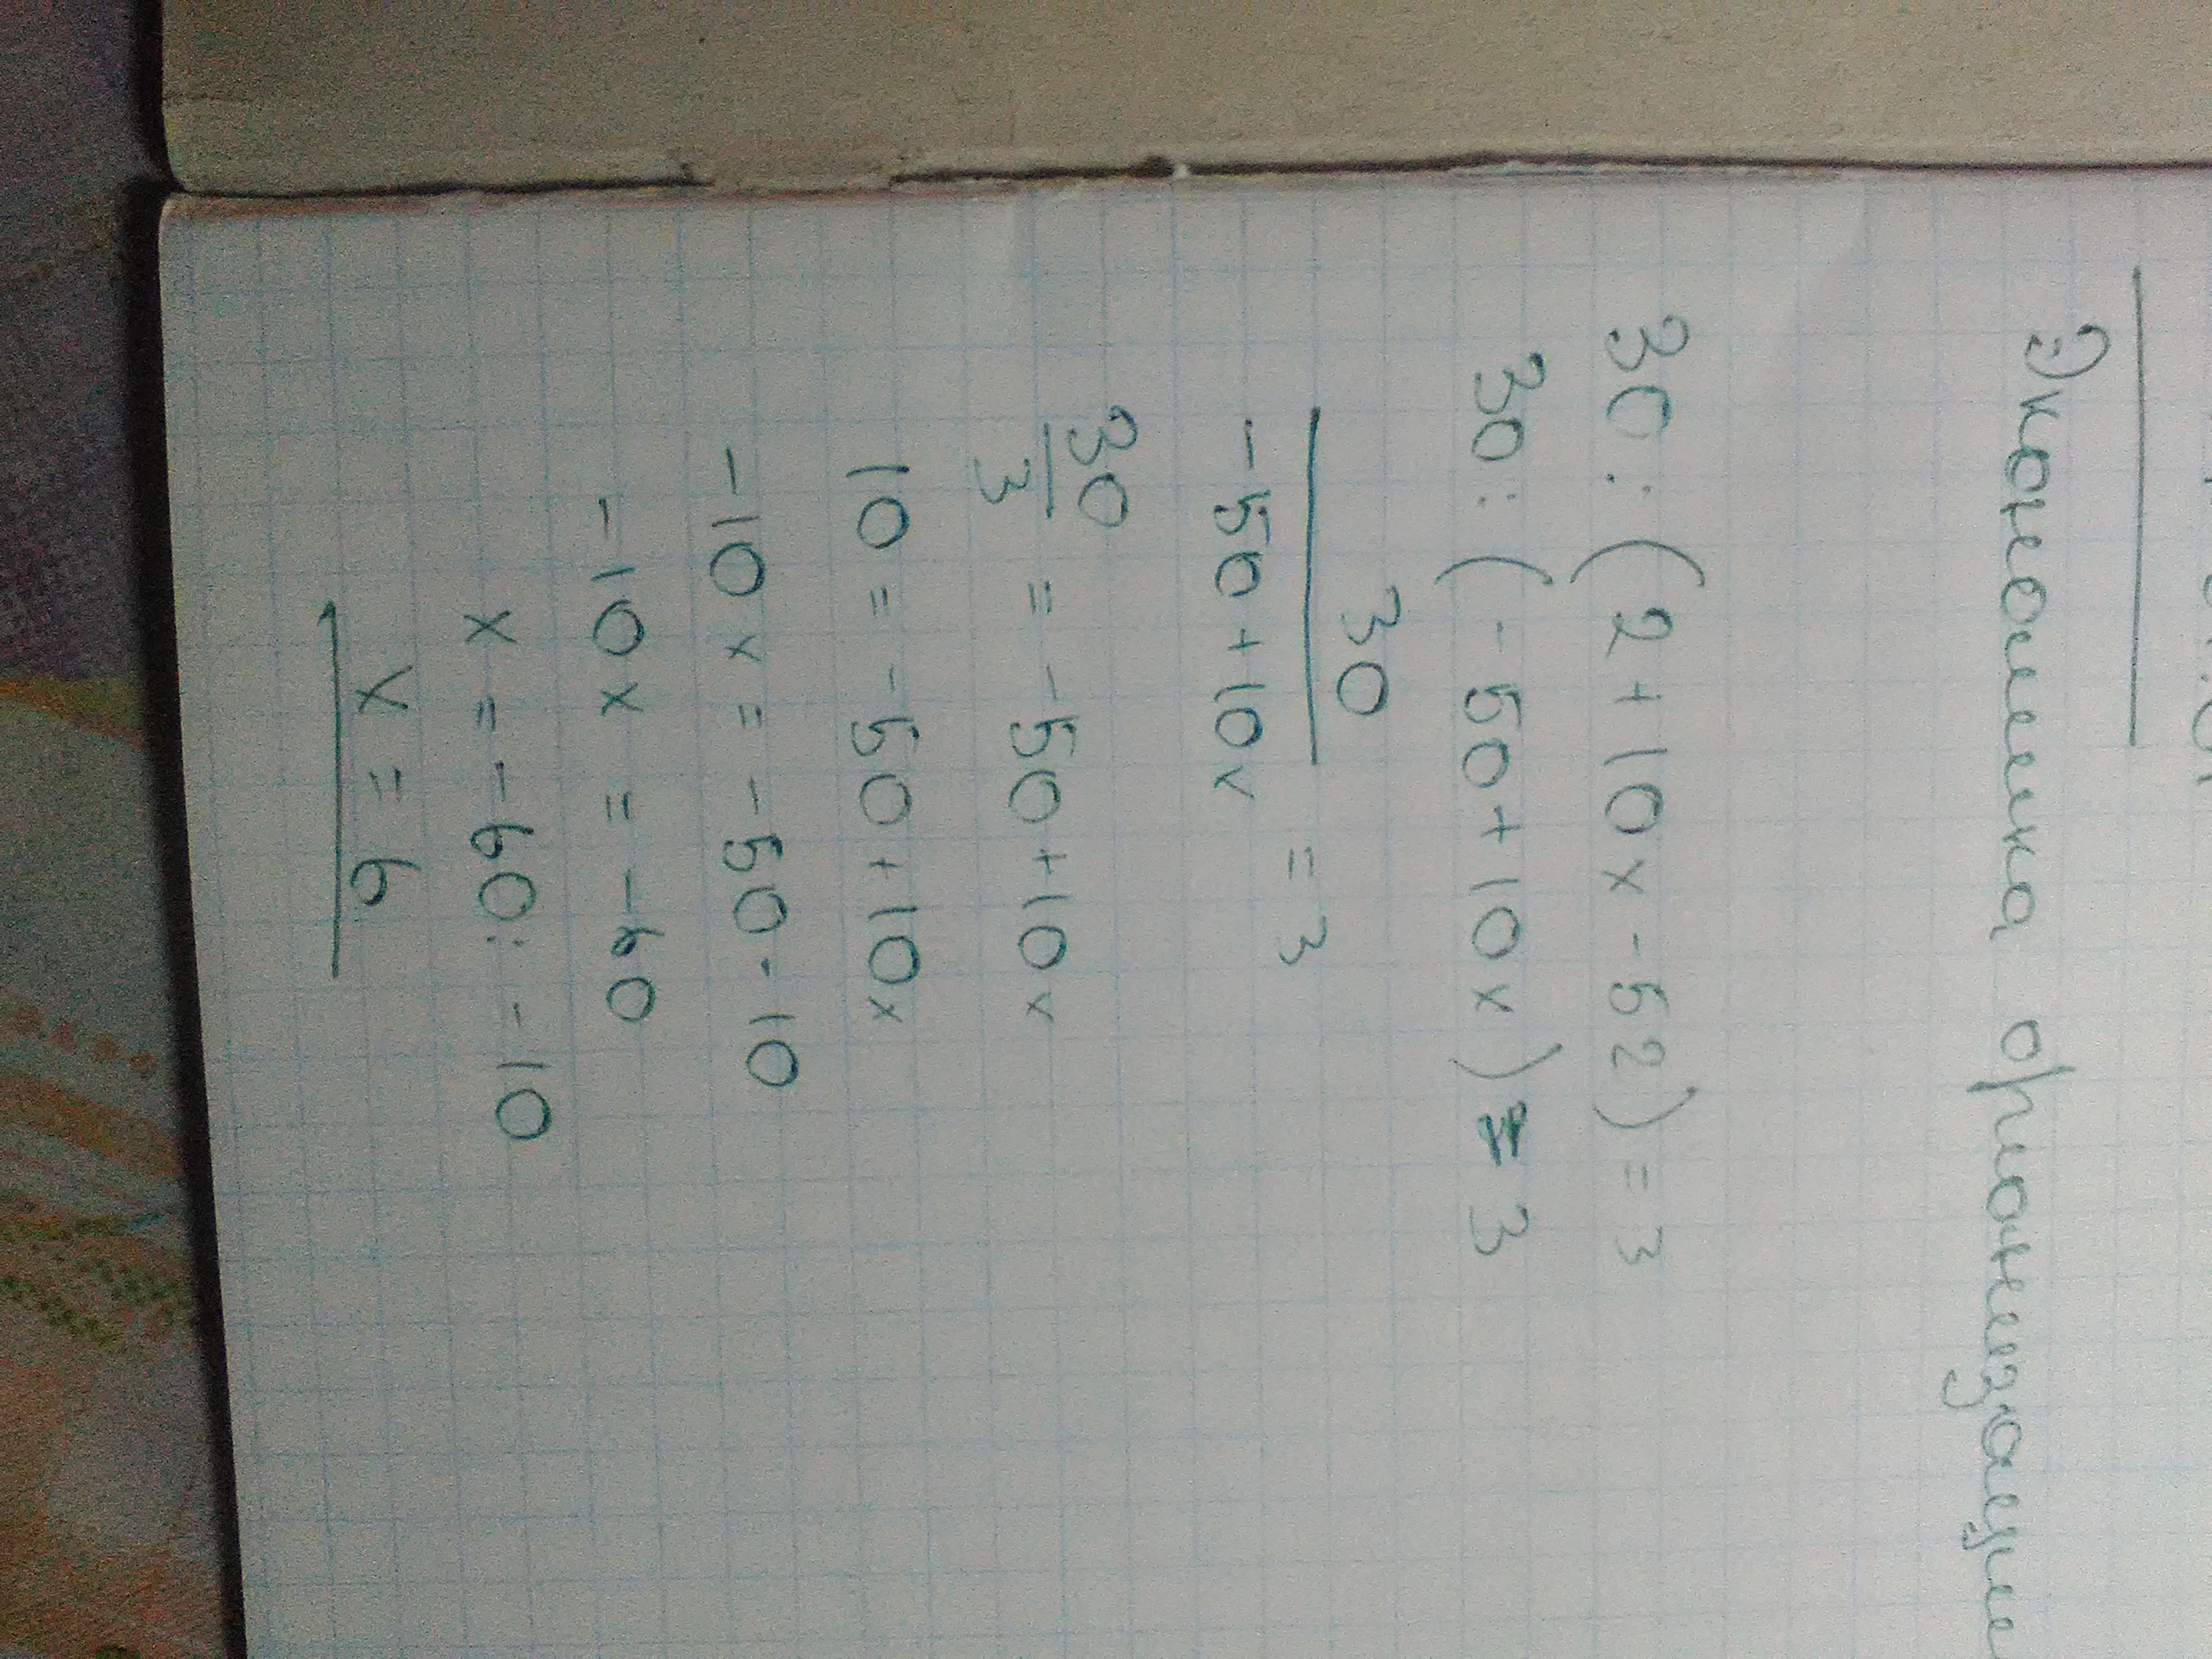 Экономика организации
30 : (2 + 10x - 52) = 3
30 : (-50 + 10x) = 3
30
-50 + 10x = 3
30
3 = -50 + 10x
10 = -50 + 10x
-10x = -50 - 10
-10x = -60
x = -60 : -10
x = 6